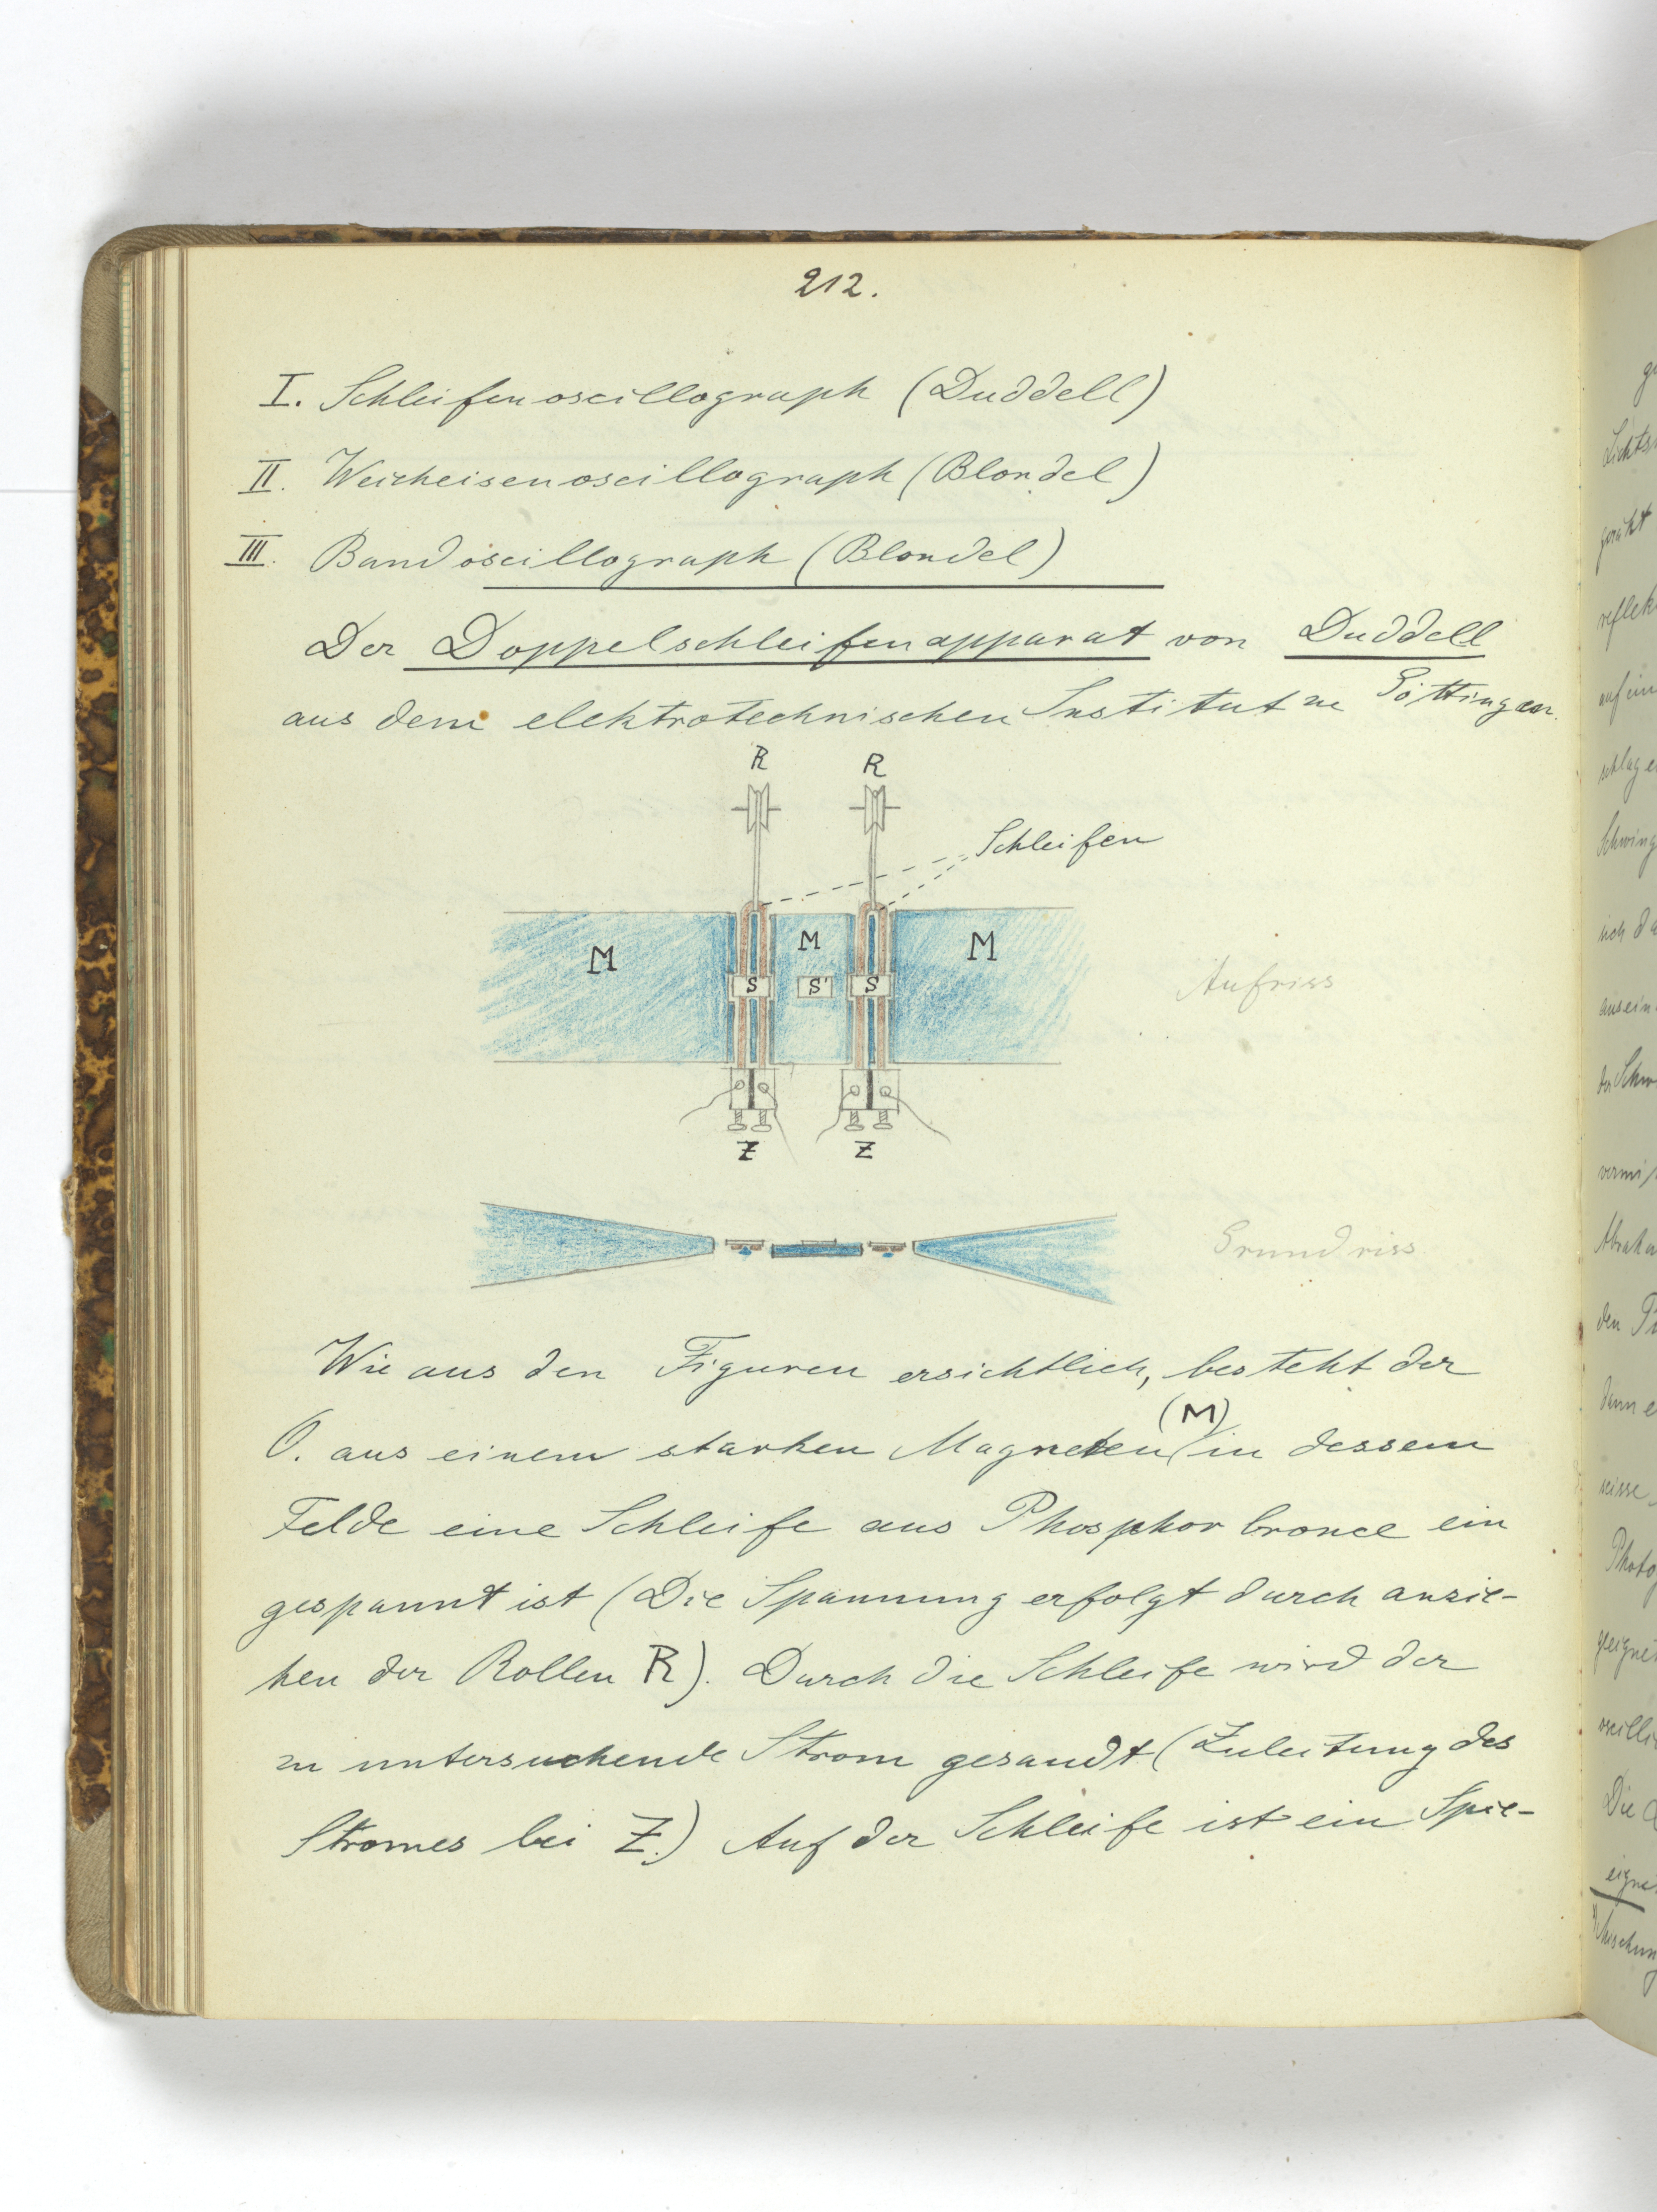 212.
I. Schleifenoscillograph (Duddell)
II. Weicheisenoscillograph (Blondel)
III. Bandoscillograph (Blondel)
Der Doppelschleifenapparat von Duddell
aus dem elektrotechnischen Institut zu Göttingen.
R R
Schleifen
M M M
S S' S
Aufriss
Z Z
Grundriss
Wie aus den Figuren ersichtlich, besteht der
O. aus einem starken Magneten (M) in dessem
Felde eine Schleife aus Phosphorbronce ein
gespannt ist (Die Spannung erfolgt durch anzie-
hen der Rollen R). Durch die Schleife wird der
zu untersuchende Strom gesandt (Zuleitung des
Stromes bei Z.) Auf der Schleife ist ein Spie-